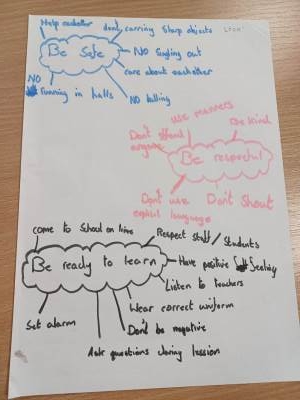 Help eachother
don't carring Sharp objects
Be Safe
NO
care about eachother
NO
running in halls
NO bulling
use manners
Be kind
Don't
anyone
Be respectful
Don't use
explicit language
Don't Shout
come to School on time
Respect staff / Students
Be ready to learn
Have positive
Listen to teachers
Wear correct uniform
Set alarm
Don't be negative
Ask questions during lession